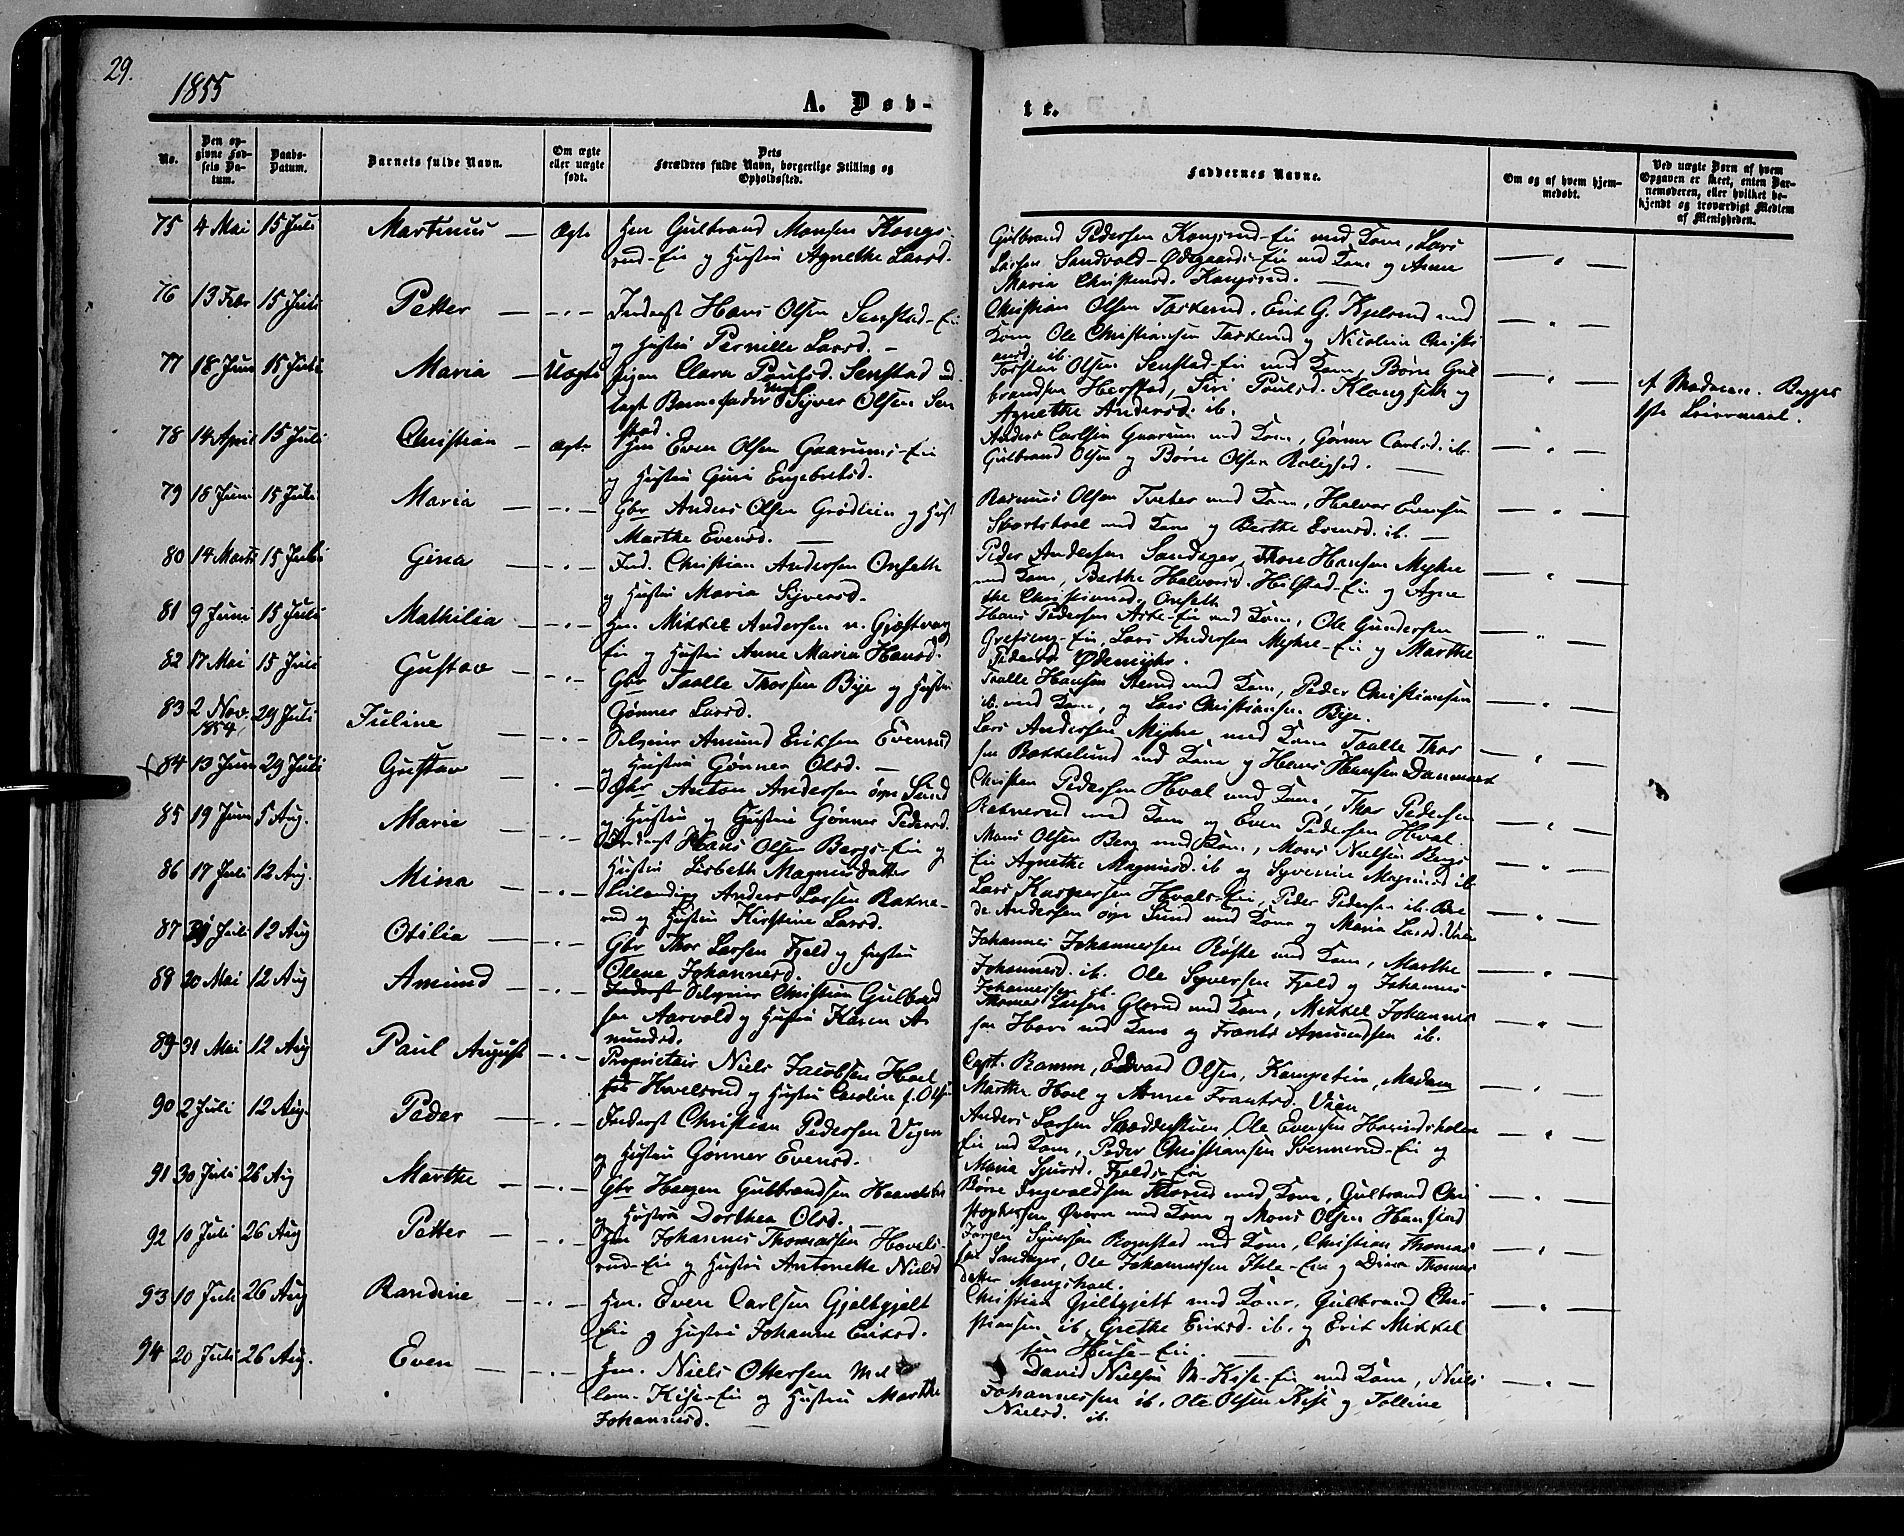 29.
1855
A. Døb-
te.
No.
Den opgivne Fødsels Datum.
Daabs-Datum.
Barnets fulde Navn.
Om ægte eller uægte født.
Dets Forældres fulde Navn, borgerlige Stilling og Opholdssted.
Faddernes Navne.
Om og af hvem hjemmedøbt.
Ved uægte Børn af hvem Opgaven er skeet, enten Barnemoderen, eller hvilket bekjendt og troværdigt Medlem af Menigheden.
75 4 Mai 15 Juli Martinus — Ægte Hm Gulbrand Monsen Kongs-
rud-Eie og Hustru Agnethe Larsd.
Gulbrand Pedersen Kongsrud-Eie med Kone, Lars
Larsen Sandvold-Ødegaards-Eie med Kone og Anne
Maria Christensd. Kongsrud. —
76 13 Febr 15 Juli Petter — - " - Inderst Hans Olsen Senstad-Eie
og Hustru Pernille Larsd. —
Christian Olsen Taskerud. Erik G. Kjelsrud med
Kone Ole Christiansen Taskerud og Nicoline Christi
ansd. ib.
77 18 Juni 15 Juli Maria — Uægte Pigen Clara Poulsd. Senstad ud-
lagt Barnefader Ungk Syver Olsen Sen
stad.
Torsten Olsen Senstad-Eie med Kone, Børre Gul
brandsen Herstad, Siri Poulsd. Klongseth og
Agnethe Andersd. ib.
af Moderen. Begges
1ste Leiermaal.
78 14 April 15 Juli Christian — Ægte Hm Even Olsen Gaarums-Eie
og Hustru Guri Engebretsd.
Anders Carlsen Gaarum med Kone, Gønner Carlsd. ib.
Gulbrand Olsen og Børre Olsen Rolighed. —
79 15 Juni 15 Juli Maria — - " - Gbr Anders Olsen Grødlien og Hust
Marthe Evensd. —
Rasmus Olsen Tveter med Kone, Halvor Evensen
med Kone og Berthe Evensd. ib. —
80 14 Marts 15 Juli Gina — - " - Ind. Christian Andersen Onseth
og Hustru Maria Syversd.
Peder Andersen Sandager, Thore Hansen Myhre
med Kone, Berthe Halvorsd. Helstad-Eie og Agne
the Christiansd. Onseth
81 9 Juni 15 Juli Mathilia — - " - Hm. Mikkel Andersen n. Gjestvang
Eie og Hustru Anne Maria Hansd.
Hans Pedersen Eie med Kone, Ole Gundersen
Grefseng-Eie, Lars Andersen Myhre-Eie og Marthe
Pedersd. Ødemyhr.
82 17 Mai 15 Juli Gustav — - " - Gbr Taalle Thorsen Bye og Hustru
Gønner Larsd.
Taalle Hansen med Kone, Peder Christiansen
ib. med Kone, og Lars Christiansen Bye.
83 2 Nov. 1854 29 Juli Juline — - " - Selveier Amund Eriksen Evenrud
og Hustru Gønner Olsd. —
Lars Andersen Myhre med Kone Taalle Thor
sen Bakkelund med Kone og Hans Hansen Danmark
84 13 Juni 29 Juli Gustav — " - Gbr Anton Andersen øvre Sund
og Hustru og Hustru Gønner Pedersd.
Christen Pedersen Hval med Kone, Thor Pedersen
Raknerud med Kone og Even Pedersen Hval.
85 19 Juni 5 Aug. Marie — - " - Inderst Hans Olsen Bergs-Eie og
Hustru Lisbeth Magnusdatter
Mons Olsen Berg med Kone, Mons Nielsen Bergs
Eie Agnethe Magnusd. ib og Syverine Magnusd ib.
86 17 Juli 12 Aug. Mina — - " - Leilending Anders Larsen Rakne-
rud og Hustru Kirstine Larsd.
Lars Kaspersen Hvals-Eie, Peder Pedersen ib. Pe
de Andersen øvre Sund med Kone og Maria Larsd.
87 31 Juli 12 Aug Otilia — - " - Gbr Thor Larsen Fjeld og Hustru
Olene Johannesd.
Johannes Johannessen Røste med Kone, Marthe
Johannesd. ib. Ole Syversen Fjeld og Johannes
Johannessen ib.
88 20 Mai 12 Aug Amund — - " - Inderst Selveier Christian Gulbrand
sen Aarvold og Hustru Karen A-
mundsd.
Thomes Larsen Glorud med Kone, Mikkel Johannes
sen Hovi med Kone og Frants Amundsen ib.
89 31 Mai 12 Aug Paul August — - " - Proprietair Niels Jacobsen Hoel
paa Hovelsrud og Hustru Caroline f. Olsen
Capt. Ramm, Edvard Olsen, Kampetien, Madam
Marthe Hoel og Anne Frantsd. Vien
90 2 Juli 12 Aug. Peder — - " - Inderst Christian Pedersen Vigen
og Hustru Gønner Evensd.
Anders Larsen Sladderstuen, Ole Evensen Hovindsholm
Eie med Kone, Peder Christiansen Svennerud-Eie og
Maria Fjelds-Eie
91 30 Juli 26 Aug Marthe — - " - Gbr Haagen Gulbrandsen
og Hustru Dorthea Olsd. —
Børre Ingvaldsen med Kone, Gulbrand Chri
stophersen Øvern med Kone og Mons Olsen Hanstad
92 10 Juli 26 Aug Petter — - " - Hm Johannes Thomassen Hovels-
rud-Eie og Hustru Antonette Nielsd
Jørgen Syversen Rognstad med Kone, Christian Thomas
sen Sandager, Ole Johannessen Ihle-Eie og Dina Thomas
datter Mengshoel.
93 10 Juli 26 Aug Randine — - " - Hm. Even Carlsen Gjeltgjelt
Eie og Hustru Johanne Eriksd.
Christian Gjeltgjelt med Kone, Gulbrand Chri
stiansen ib. Grethe Eriksd. ib. og Erik Mikkel
sen Huse-Eie.
94 20 Juli 26 Aug. Even — - " - Hm. Niels Ottersen Mel
lem-Kise-Eie og Hustru Marthe
Johannesd. —
David Nielsen M-Kise-Eie med Kone, Niels
Johannessen ib. Ole Olsen Kise og Tolline
Nielsd. ib.